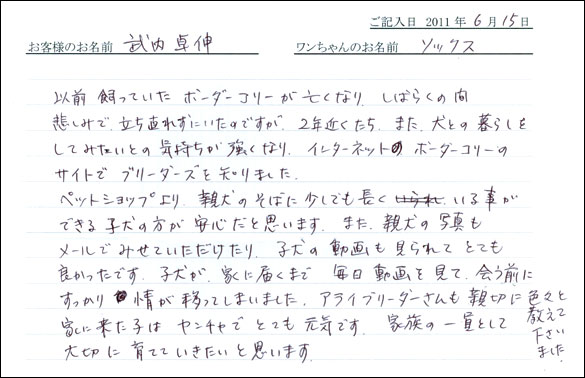 ご記入日 2011年6月15日
お客様のお名前 武内卓伸 ワンちゃんのお名前 ソックス
以前飼っていたボーダーコリーが亡くなり、しばらくの間
悲しみで、立ち直れずにいたのですが、2年近くたち、また、犬との暮らしを
してみたいとの気持ちが強くなり、インターネットのボーダーコリーの
サイトでブリーダーズを知りました。
ペットショップより、親犬のそばに少しでも長くいる事が
できる子犬の方が安心だと思います。また、親犬の写真も
メールでみせていただけたり、子犬の動画も見られてとても
良かったです。子犬が、家に届くまで毎日動画を見て、会う前に
すっかり情が移ってしまいました。アライブリーダーさんも親切に色々と
教えて
下さい
ました
家に来た子はヤンチャでとても元気です。家族の一員として
大切に育てていきたいと思います。